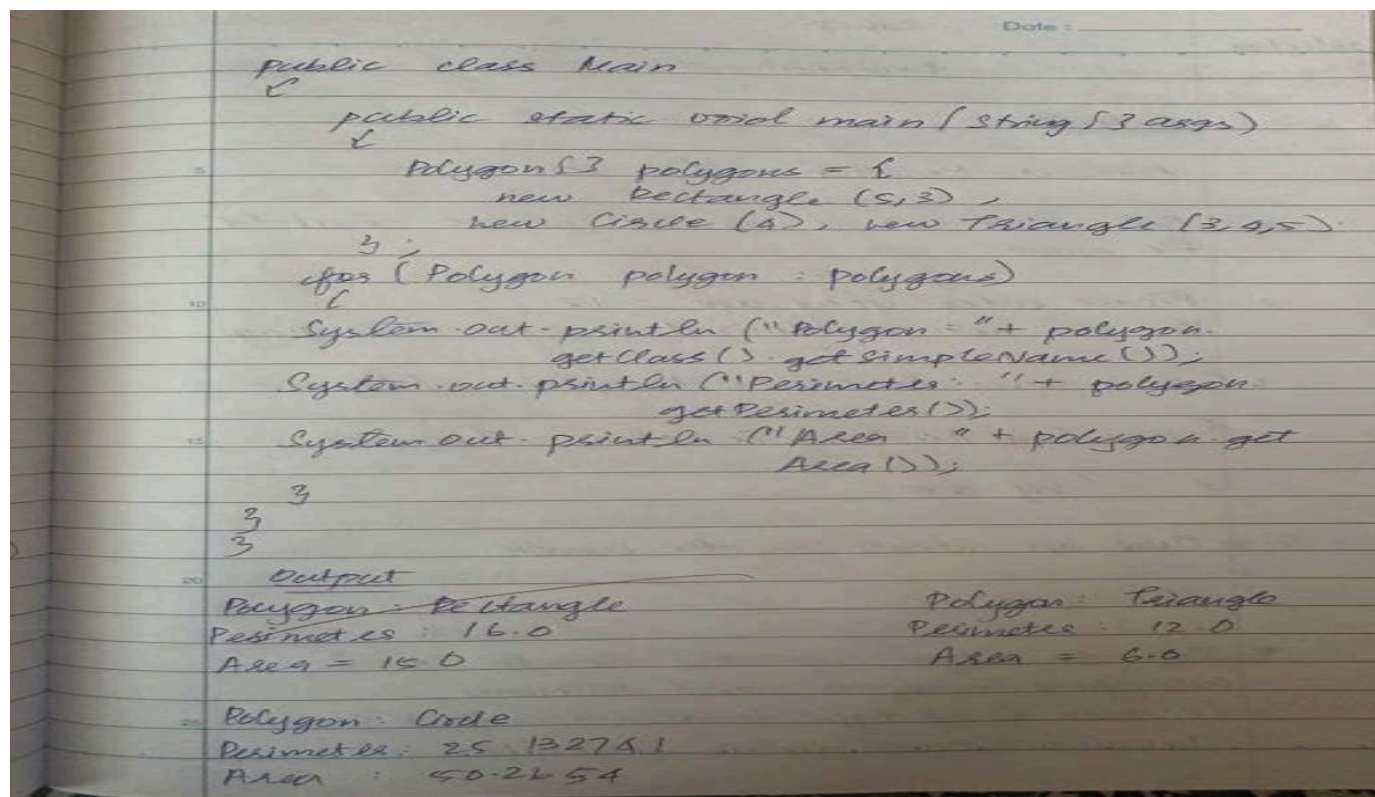 Date :
public class Main
{
public static void main (String [] args)
{
Polygon [] polygons = {
new Rectangle (5,3) ,
new Circle (4), new Triangle (3,4,5)
} ;
for (Polygon polygon : polygons)
{
System.out.println ("Polygon : " + polygon.
getClass().getSimpleName());
System.out.println ("Perimeter: " + polygon.
getPerimeter());
System.out.println ("Area : " + polygon.get
Area());
}
}
}
Output
Polygon : Rectangle
Perimeter : 16.0
Area = 15.0
Polygon : Triangle
Perimeter : 12.0
Area = 6.0
Polygon : Circle
Perimeter : 25.132741
Area : 50.2654